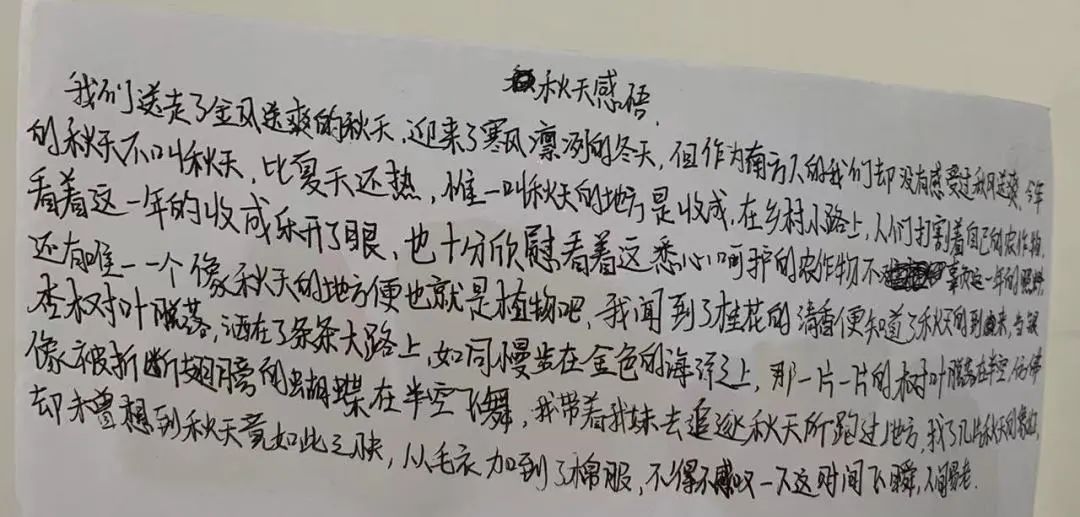 秋天感悟
我们送走了金风送爽的秋天,迎来了寒风凛冽的冬天,但作为南方人的我们却没有感受过秋风送爽、今年
的秋天不叫秋天,比夏天还热,惟一叫秋天的地方是收成,在乡村小路上,人们打割着自己的农作物,
看着这一年的收成乐开了眼,也十分欣慰看着这悉心呵护的农作物不辜负这一年的照料,
还有唯一一个像秋天的地方便也就是植物吧,我闻到了桂花的清香便知道了秋天的到来,当银
杏树叶脱落,洒在了条条大路上,如同慢步在金色的海流之上,那一片一片的树叶脱落在半空,仿佛
像被折断翅膀的蝴蝶在半空飞舞,我带着我妹去追逐秋天所跑过地方,找了几片秋天的
却未曾想到秋天竟如此之快,从毛衣加到了棉服,不得不感叹一下这时间飞瞬,人间易老.